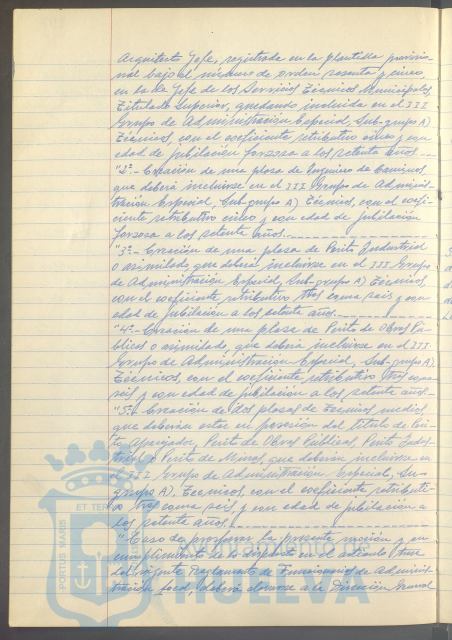 Arquitecto Jefe, registrada en la plantilla provisio
nal bajo el número de orden sesenta y cinco,
en la de Jefe de los Servicios Técnicos Municipales
Titulado Superior, quedando incluida en el III
Grupo de Administración Especial, Sub-grupo A)
Técnicos, con el coeficiente retributivo cinco y con
edad de jubilación forzosa a los setenta años.
"2º.- Creación de una plaza de Ingeniero de Caminos
que deberá incluirse en el III Grupo de Adminis-
tración Especial, Sub-grupo A) Técnicos, con el coefi-
ciente retributivo cinco y con edad de jubilación
forzosa a los setenta años.
"3º.- Creación de una plaza de Perito Industrial
o asimilado, que deberá incluirse en el III Grupo
de Administración Especial, Sub-grupo A) Técnicos,
con el coeficiente retributivo tres coma seis y con
edad de jubilación a los setenta años.
"4º.- Creación de una plaza de Perito de Obras Pú-
blicas o asimilado, que deberá incluirse en el III
Grupo de Administración Especial, Sub-grupo A).
Técnicos, con el coeficiente retributivo tres coma
seis y con edad de jubilación a los setenta años.
"5º.- Creación de dos plazas de Técnicos medios
que deberán estar en posesión del título de Peri-
to Aparejador, Perito de Obras Públicas, Perito Indus-
trial o Perito de Minas, que deberán incluirse en
el III Grupo de Administración Especial, Su-
grupo A). Técnicos, con el coeficiente retributi-
vo tres coma seis y con edad de jubilación a
los setenta años.
"Caso de prosperar la presente moción y en
cumplimiento de lo dispuesto en el artículo
del vigente Reglamento de Funcionarios de Adminis-
tración Local, deberá elevarse a la Dirección General
PORTUS MARIS
ET TER
HUELVA